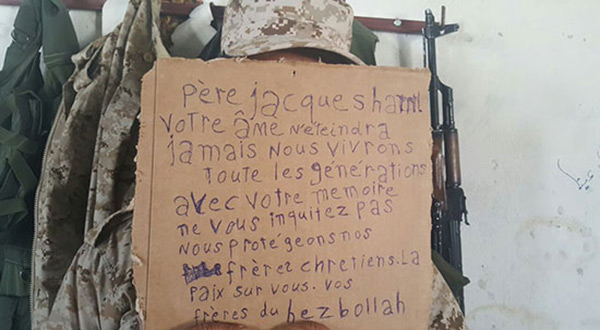 Père jacques haml
votre âme n'éteindra
jamais nous vivrons
toute les générations
avec votre memoire
ne vous inquitez pas
nous proté geons nos
frères chretiens. La
paix sur vous. vos
frères du hezbollah